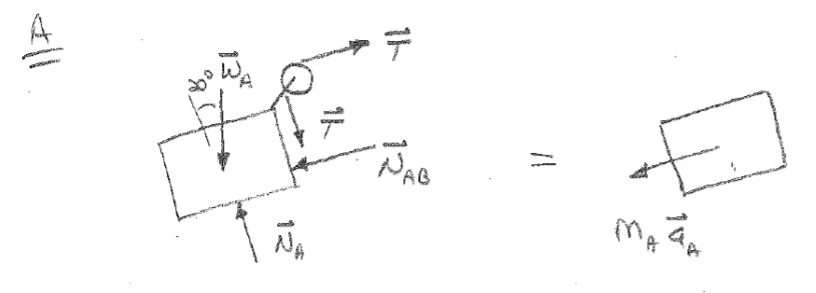 A
T⃗
20° W⃗_A
T⃗
N⃗_AB
=
N⃗_A
m_A a⃗_A